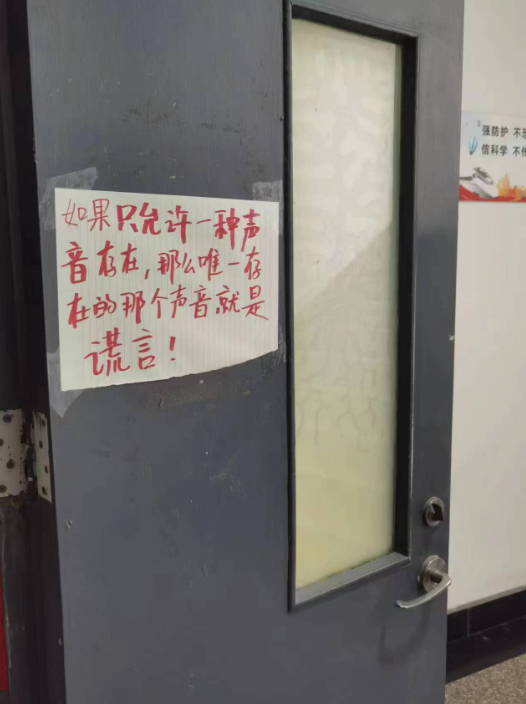 如果只允许一种声
音存在,那么唯一存
在的那个声音就是
谎言!
强防护 不恐
信科学 不传